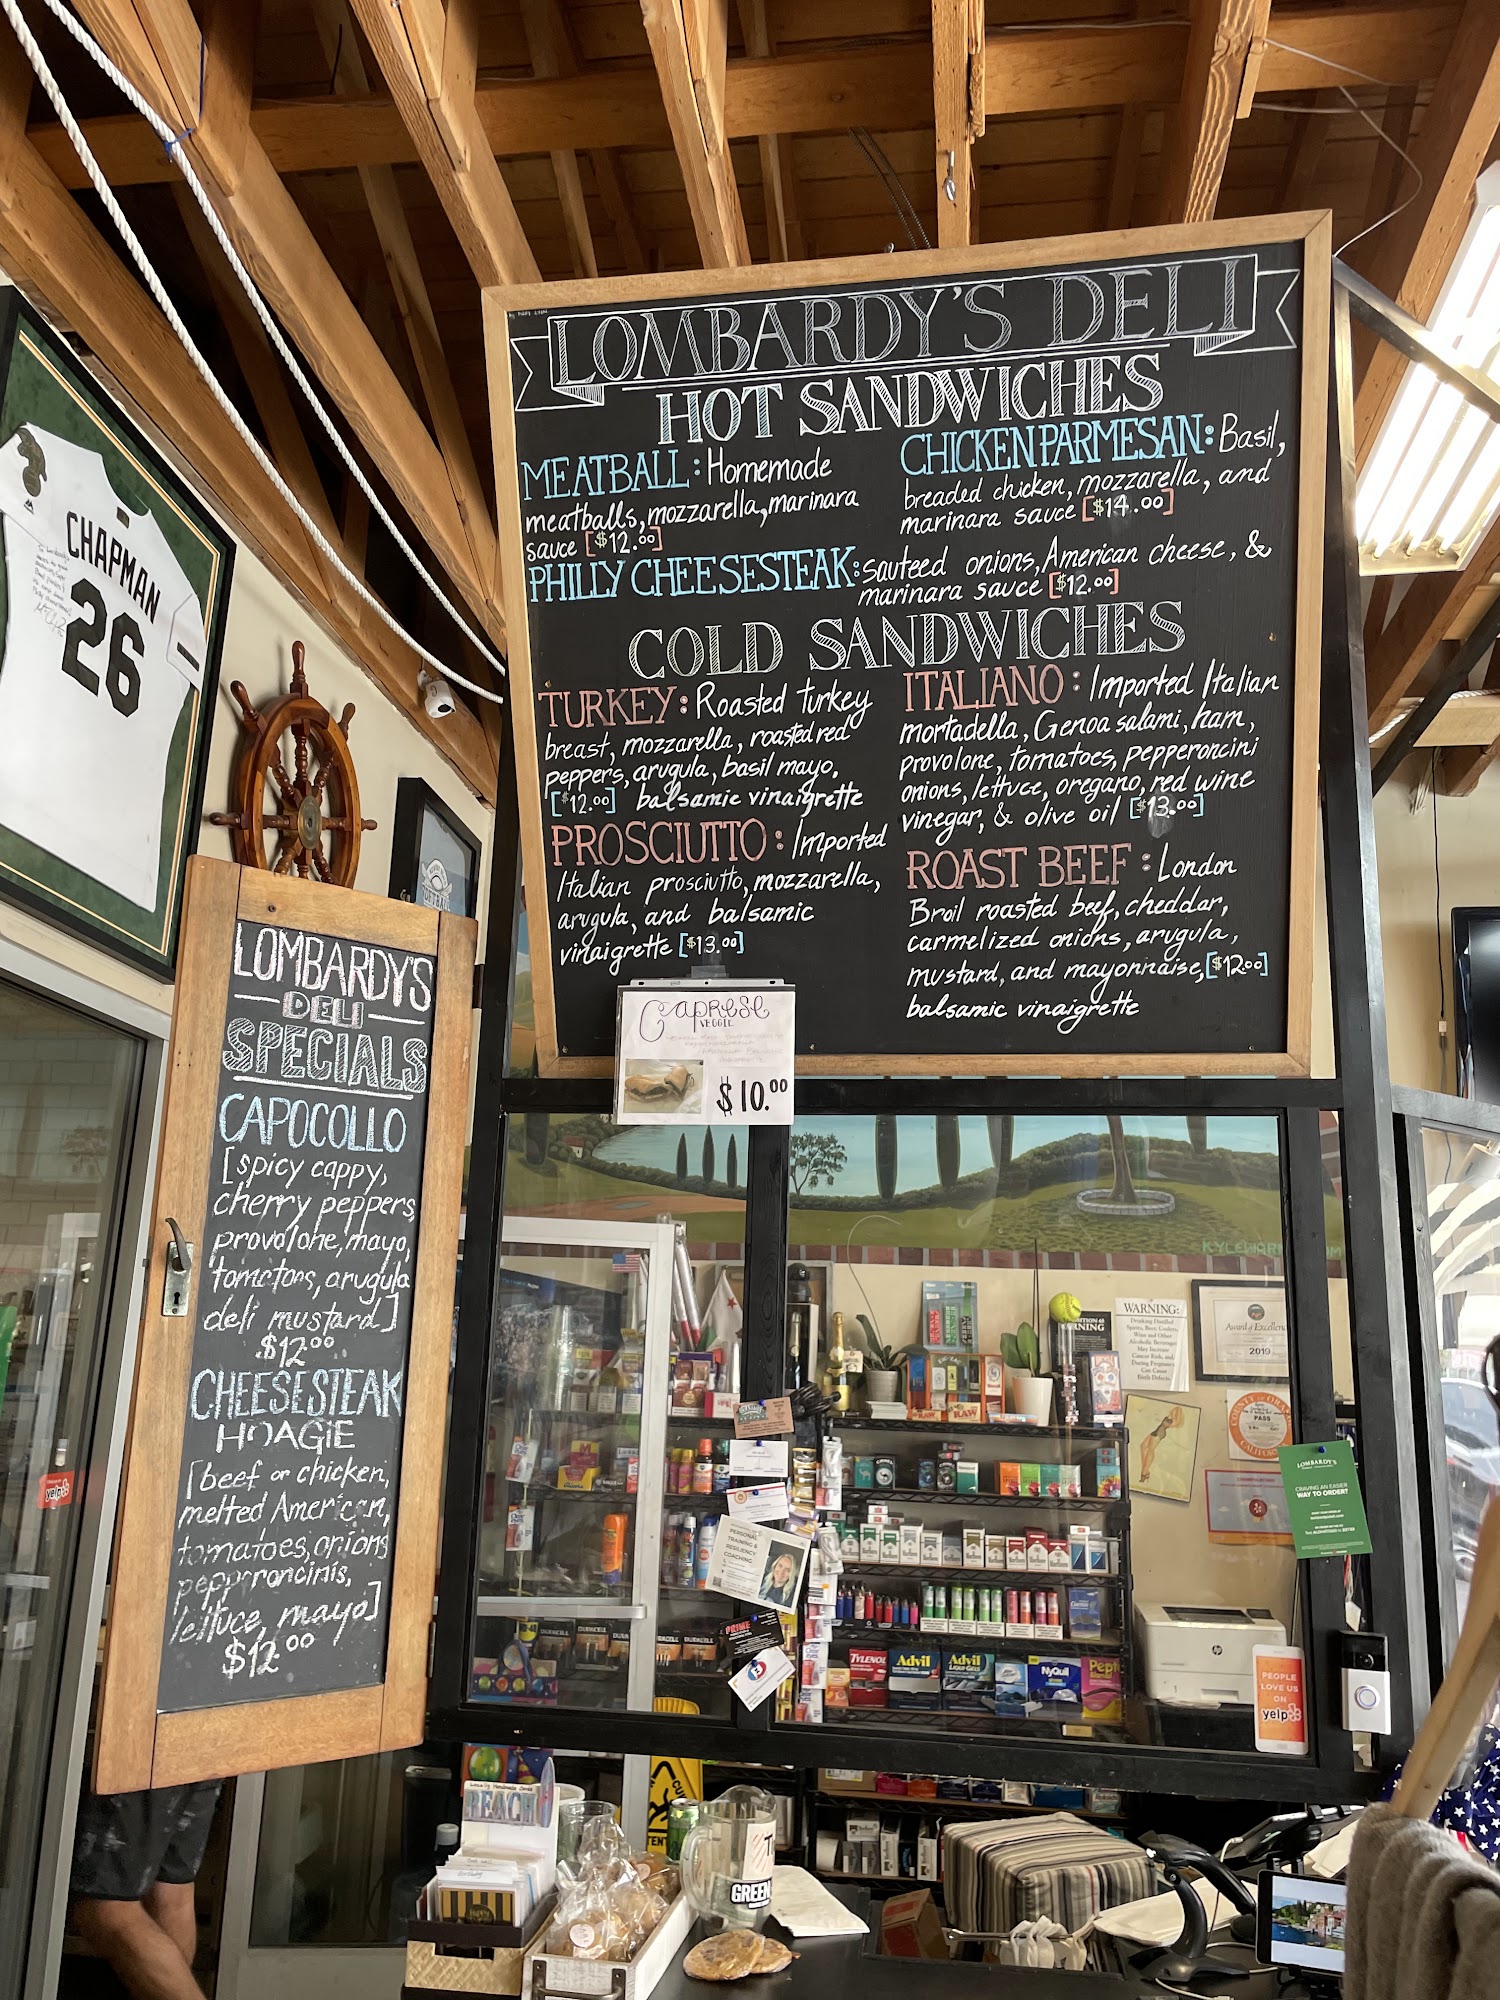 LOMBARDY'S DELI
HOT SANDWICHES
MEATBALL: Homemade
meatballs, mozzarella, marinara
sauce [$12.00]
CHICKEN PARMESAN: Basil,
breaded chicken, mozzarella, and
marinara sauce [$14.00]
PHILLY CHEESESTEAK: sauteed onions, American cheese, &
marinara sauce [$12.00]
COLD SANDWICHES
TURKEY: Roasted turkey
breast, mozzarella, roasted red
peppers, arugula, basil mayo,
[$12.00] balsamic vinaigrette
PROSCIUTTO: Imported
Italian prosciutto, mozzarella,
arugula, and balsamic
vinaigrette [$13.00]
ITALIANO: Imported Italian
mortadella, Genoa salami, ham,
provolone, tomatoes, pepperoncini
onions, lettuce, oregano, red wine
vinegar, & olive oil [$13.00]
ROAST BEEF: London
Broil roasted beef, cheddar,
carmelized onions, arugula,
mustard, and mayonnaise, [$12.00]
balsamic vinaigrette
Caprese
VEGGIE
$10.00
CHAPMAN
26
LOMBARDY'S
DELI
SPECIALS
CAPOCOLLO
[spicy cappy,
cherry peppers,
provolone, mayo,
tomatoes, arugula
deli mustard]
$12.00
CHEESESTEAK
HOAGIE
[beef or chicken,
melted American,
tomatoes, onions
pepperoncinis,
lettuce, mayo]
$12.00
yelp
WARNING:
Drinking Distilled
Spirits, Beer, Coolers,
Wine and Other
Alcoholic Beverages
May Increase
Cancer Risk, and
During Pregnancy
Can Cause
Birth Defects.
Award of Excellence
2019
RAW
RAW
PASS
LOMBARDY'S
CRAVING AN EASIER
WAY TO ORDER?
PERSONAL
TRAINING &
RESILIENCY
COACHING
PRIME
DURACELL
DURACELL
TYLENOL
Advil
Advil
LIQUI-GELS
NyQuil
hp
PEOPLE
LOVE US
ON
yelp
BEACH
GREEN